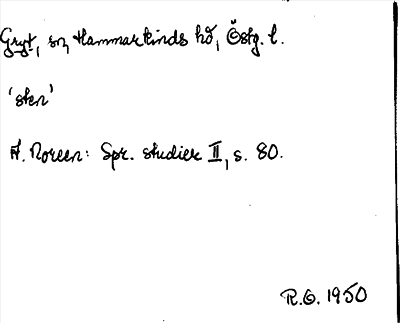 Gryt, sn, Hammarkinds hd, Östg. l.
'sten'
A. Noreen: Spr. studier II, s. 80.
R.O. 1950